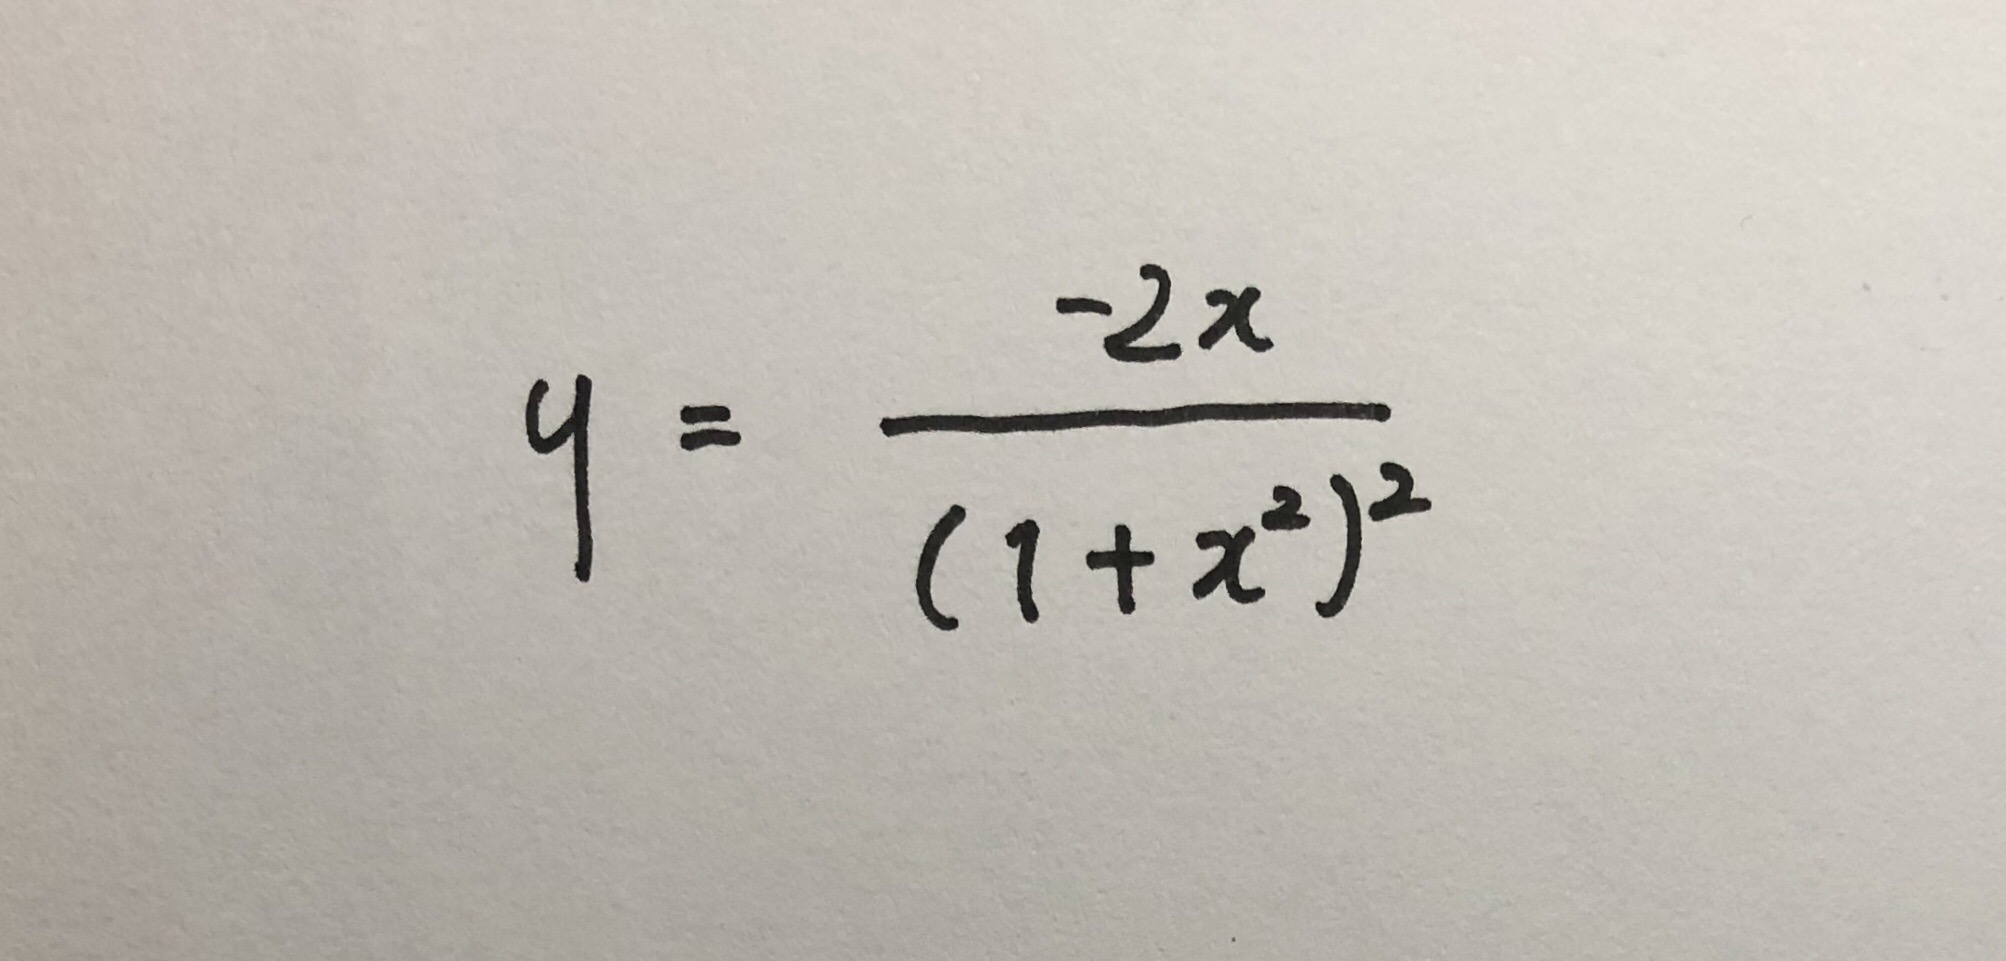 y = -2x / (1 + x²)²